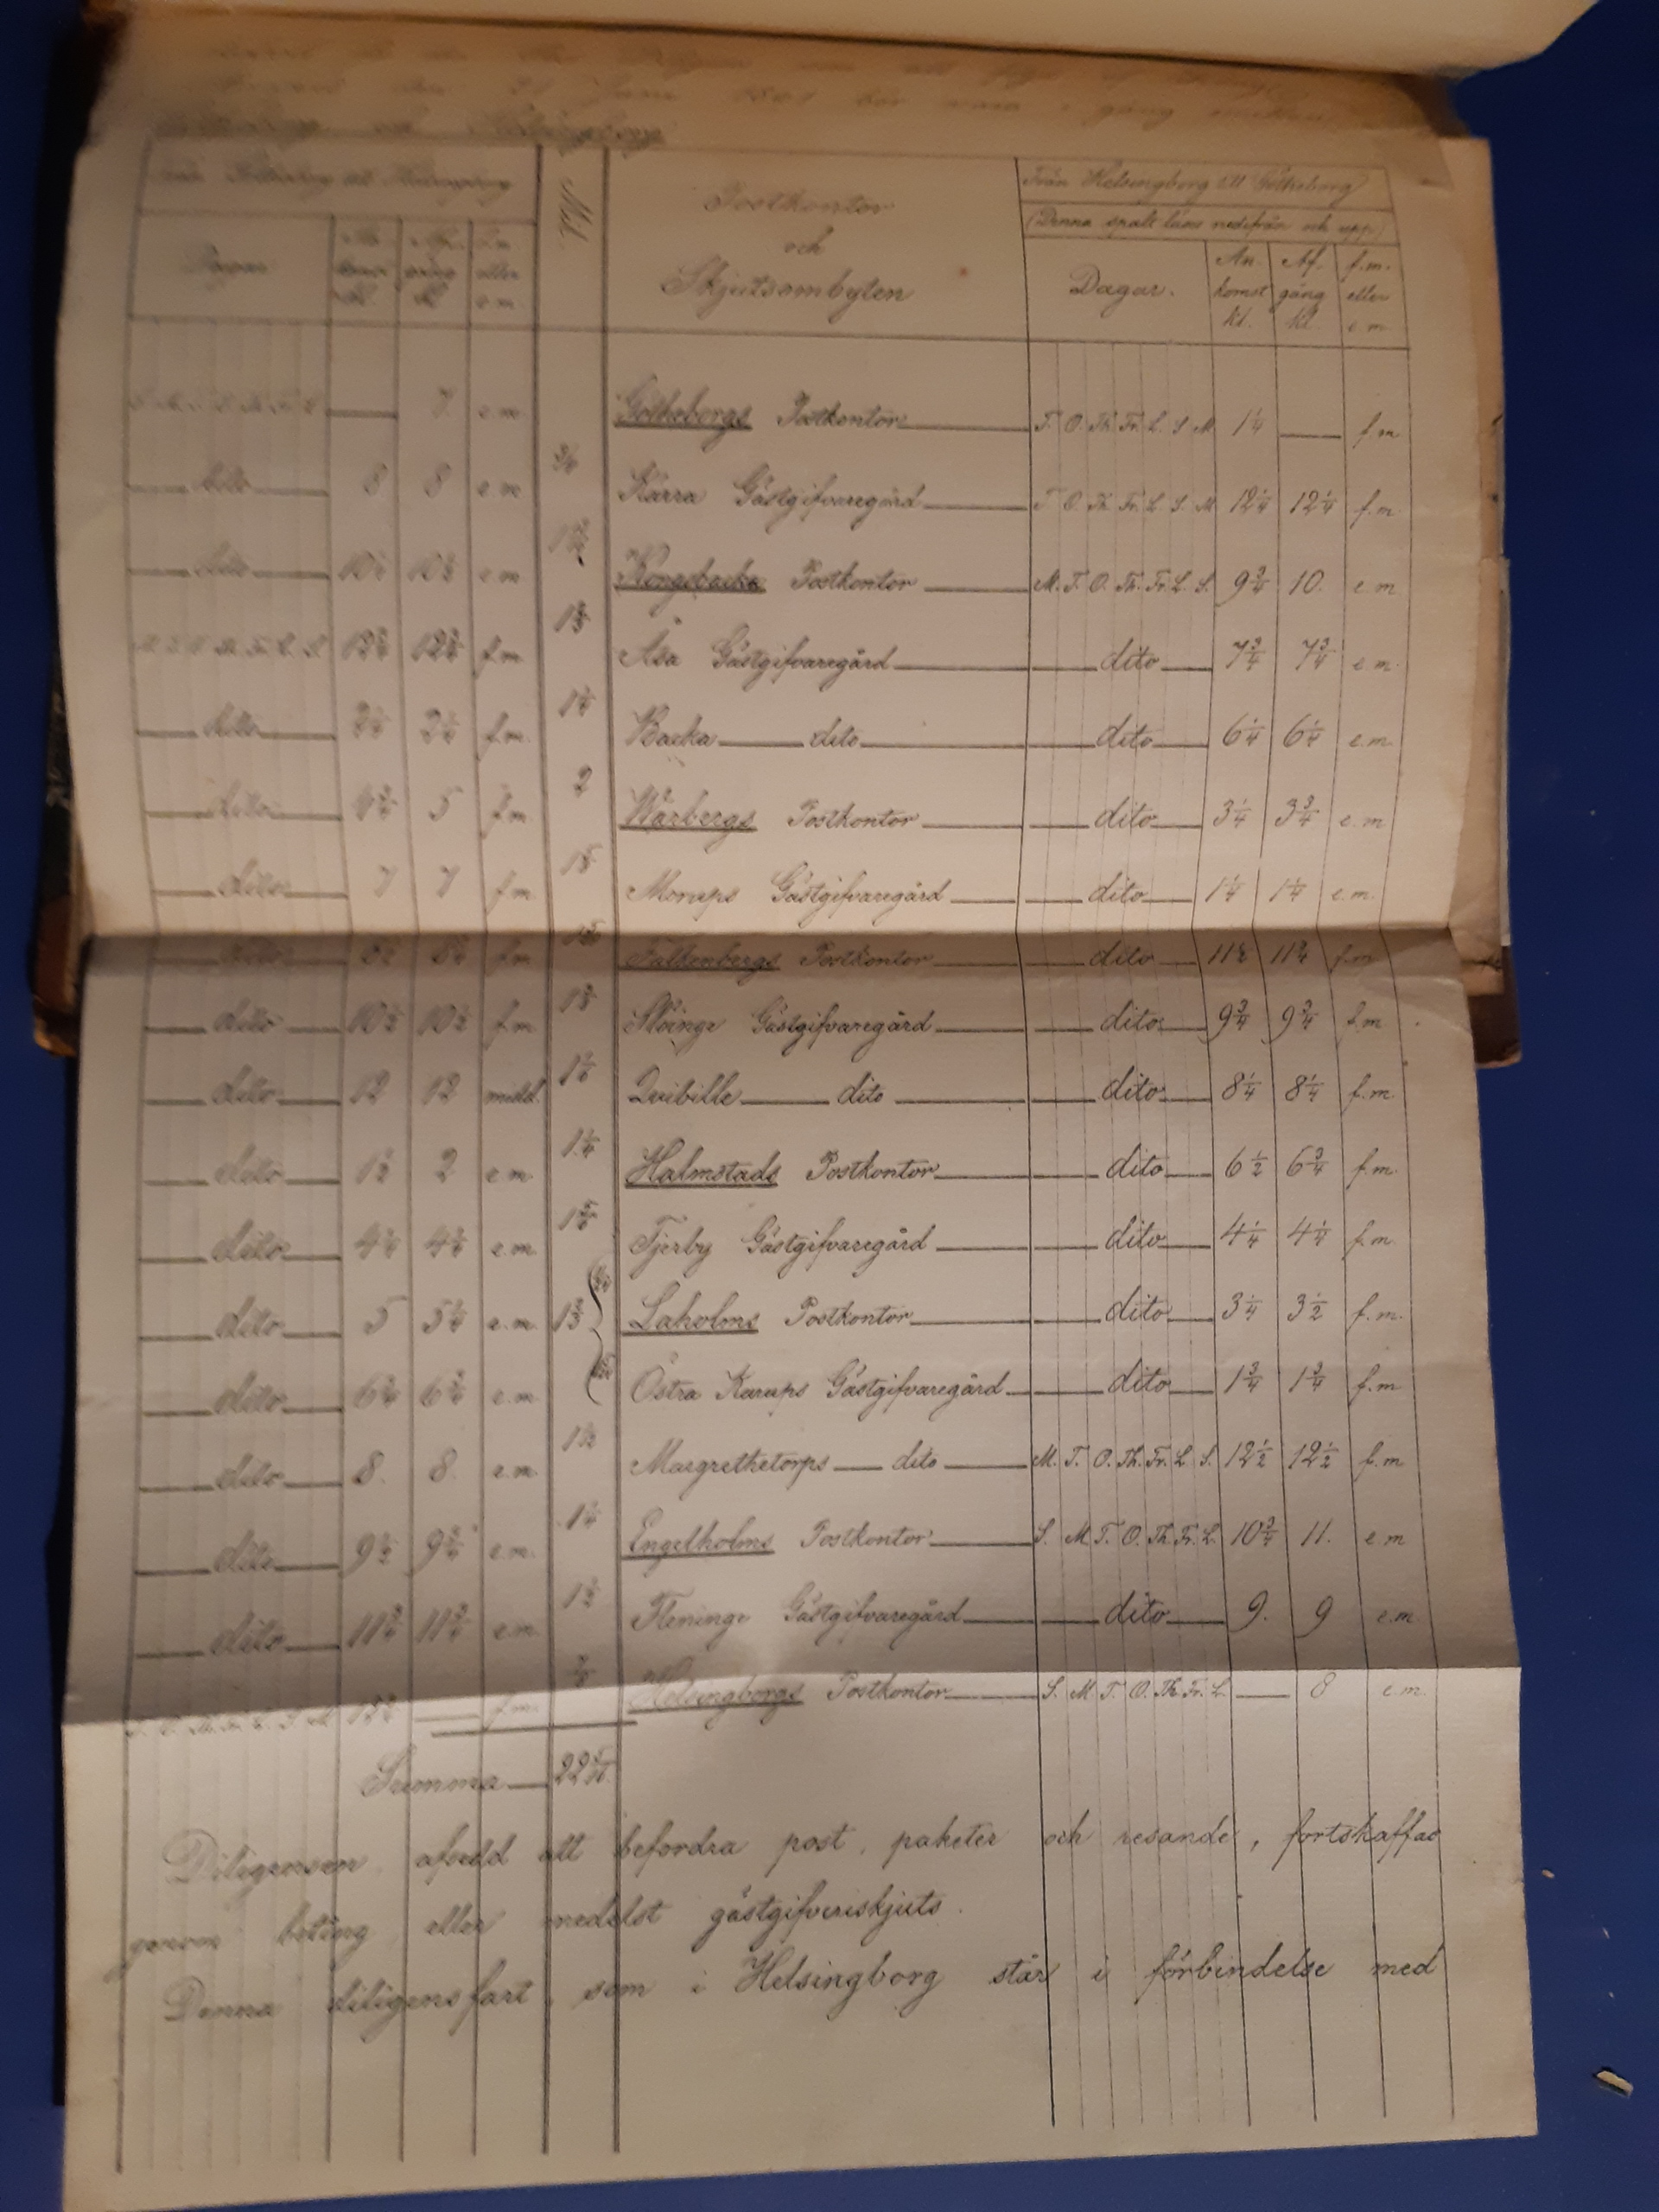 bör vara i gång mellan
Götheborg och Helsingborg
Från Götheborg till Helsingborg
Mil.
Postkontor
och
Skjutsombyten
Från Helsingborg till Götheborg
(Denna spalt läses nedifrån och upp)
Dagar
An-
komst
kl.
Af-
gång
kl.
f.m.
eller
e.m.
Dagar.
An-
komst
kl.
Af-
gång
kl.
f.m.
eller
e.m.
7 e.m. Götheborgs Postkontor T. O. Th. Fr. L. S. M. 1 1/4 f.m.
3/4
dito 8 8 e.m. Kärra Gästgifvaregård T. O. Th. Fr. L. S. M. 12 1/4 12 1/4 f.m.
dito e.m. Kongsbacka Postkontor M. T. O. Th. Fr. L. S. 9 3/4 10. e.m.
M. T. O. Th. Fr. L. S. f.m. Åsa Gästgifvaregård dito 7 3/4 7 3/4 e.m.
dito f.m. Backa dito dito 6 1/4 6 1/4 e.m.
2
dito 5 f.m. Warbergs Postkontor dito 3 1/4 3 3/4 e.m.
dito 7 7 f.m. Morups Gästgifvaregård dito 1 1/4 1 1/4 e.m.
dito f.m. Falkenbergs Postkontor dito f.m.
dito 10 1/2 10 1/2 f.m. Slöinge Gästgifvaregård dito 9 3/4 9 3/4 f.m.
dito 12 12 midd. Qvibille dito dito 8 1/4 8 1/4 f.m.
1 1/4
dito 1 1/2 2 e.m. Halmstads Postkontor dito 6 1/2 6 3/4 f.m.
dito e.m. Tjerby Gästgifvaregård dito 4 1/4 4 1/4 f.m.
dito 5 5 1/4 e.m. Laholms Postkontor dito 3 1/4 3 1/2 f.m.
dito 6 3/4 6 3/4 e.m. Östra Karups Gästgifvaregård dito 1 3/4 1 3/4 f.m.
dito 8. 8. e.m. Margrethetorps dito M. T. O. Th. Fr. L. S. 12 1/2 12 1/2 f.m.
1 1/4
dito 9 1/2 9 3/4 e.m. Engelholms Postkontor S. M. T. O. Th. Fr. L. 10 3/4 11. e.m.
dito 11 3/4 11 3/4 e.m. Fleninge Gästgifvaregård dito 9. 9 e.m.
f.m. Helsingborgs Postkontor S. M. T. O. Th. Fr. L. 8 e.m.
Summa
Diligensen, afsedd att befordra post, paketer och resande, fortskaffas
genom beting eller medelst gästgifveriskjuts.
Denna diligensfart, som i Helsingborg står i förbindelse med